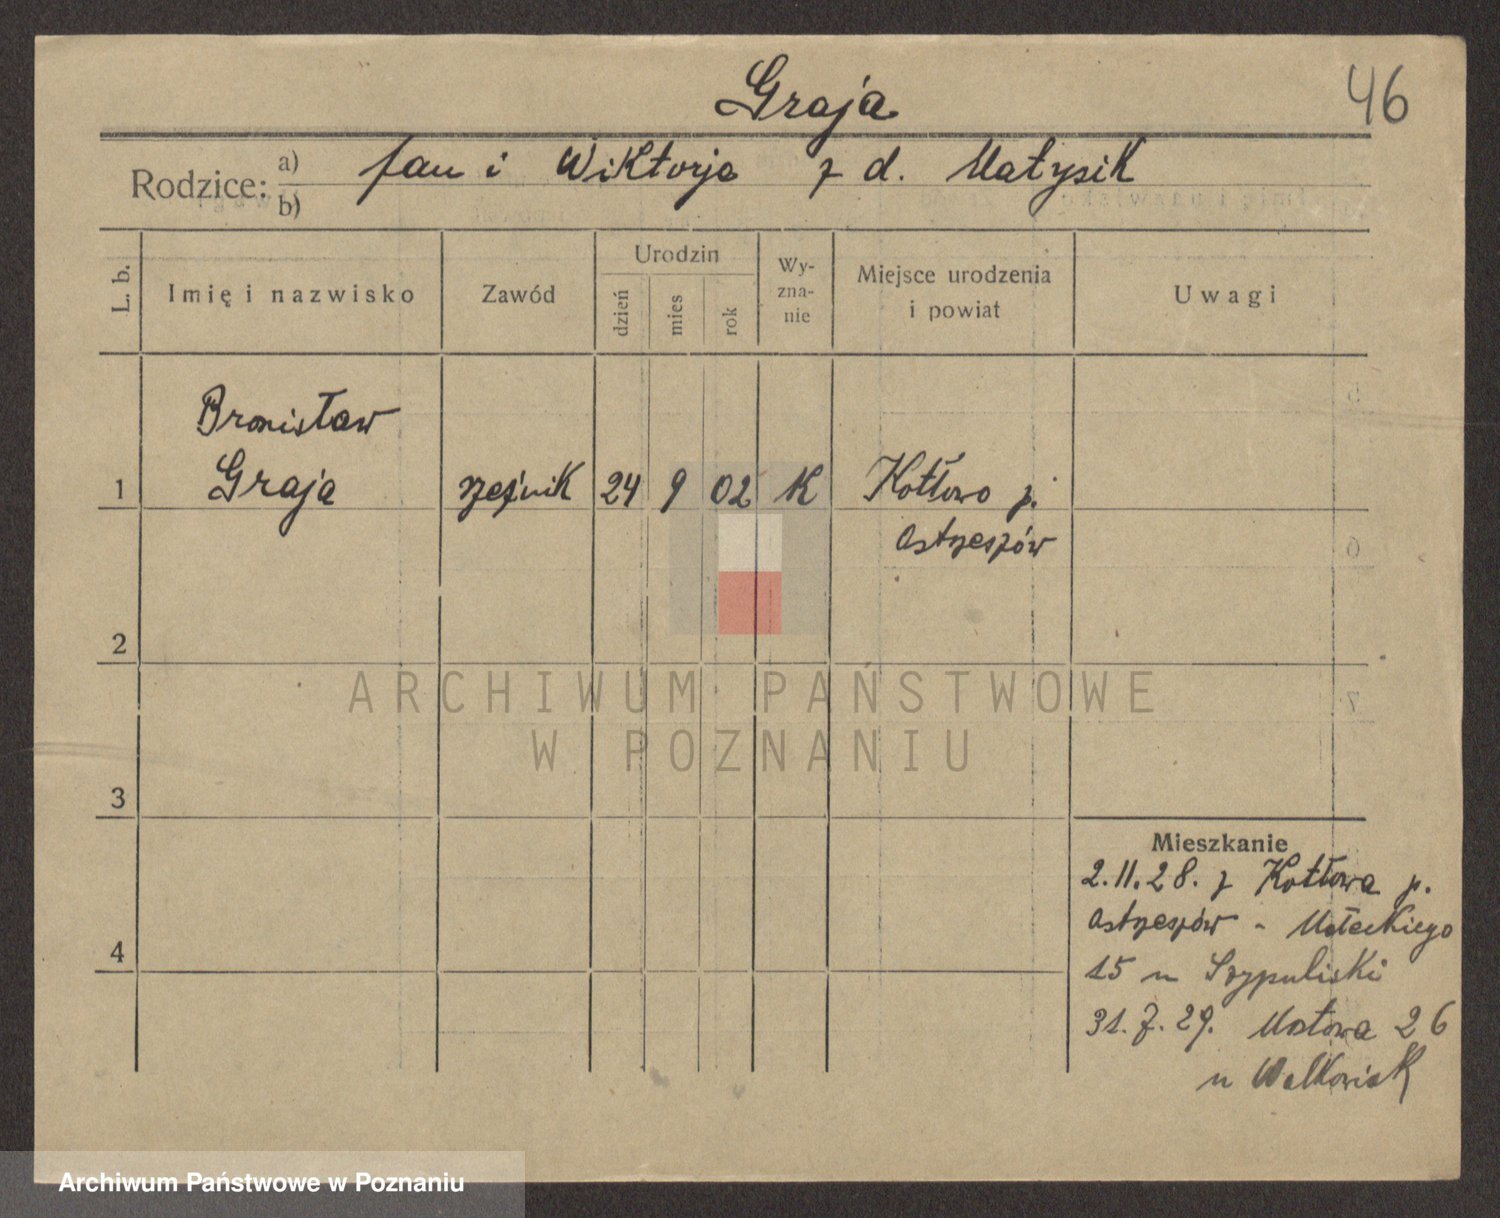 Graja
46
Rodzice: a) Jan i Wiktorja z d. Małysik
b)
L. b.
Imię i nazwisko
Zawód
Urodzin
dzień
mies
rok
Wy-
zna-
nie
Miejsce urodzenia
i powiat
Uwagi
Bronisław
1 Graja rzeźnik 24 9 02 K Kotłowo p.
Ostrzeszów
2
3
4
Mieszkanie
2.11.28. z Kotłowa p.
Ostrzeszów - Małeckiego
15 u Szypuliski
31.7.29. Mostowa 26
u Walkowiak
ARCHIWUM PAŃSTWOWE
W POZNANIU
Archiwum Państwowe w Poznaniu